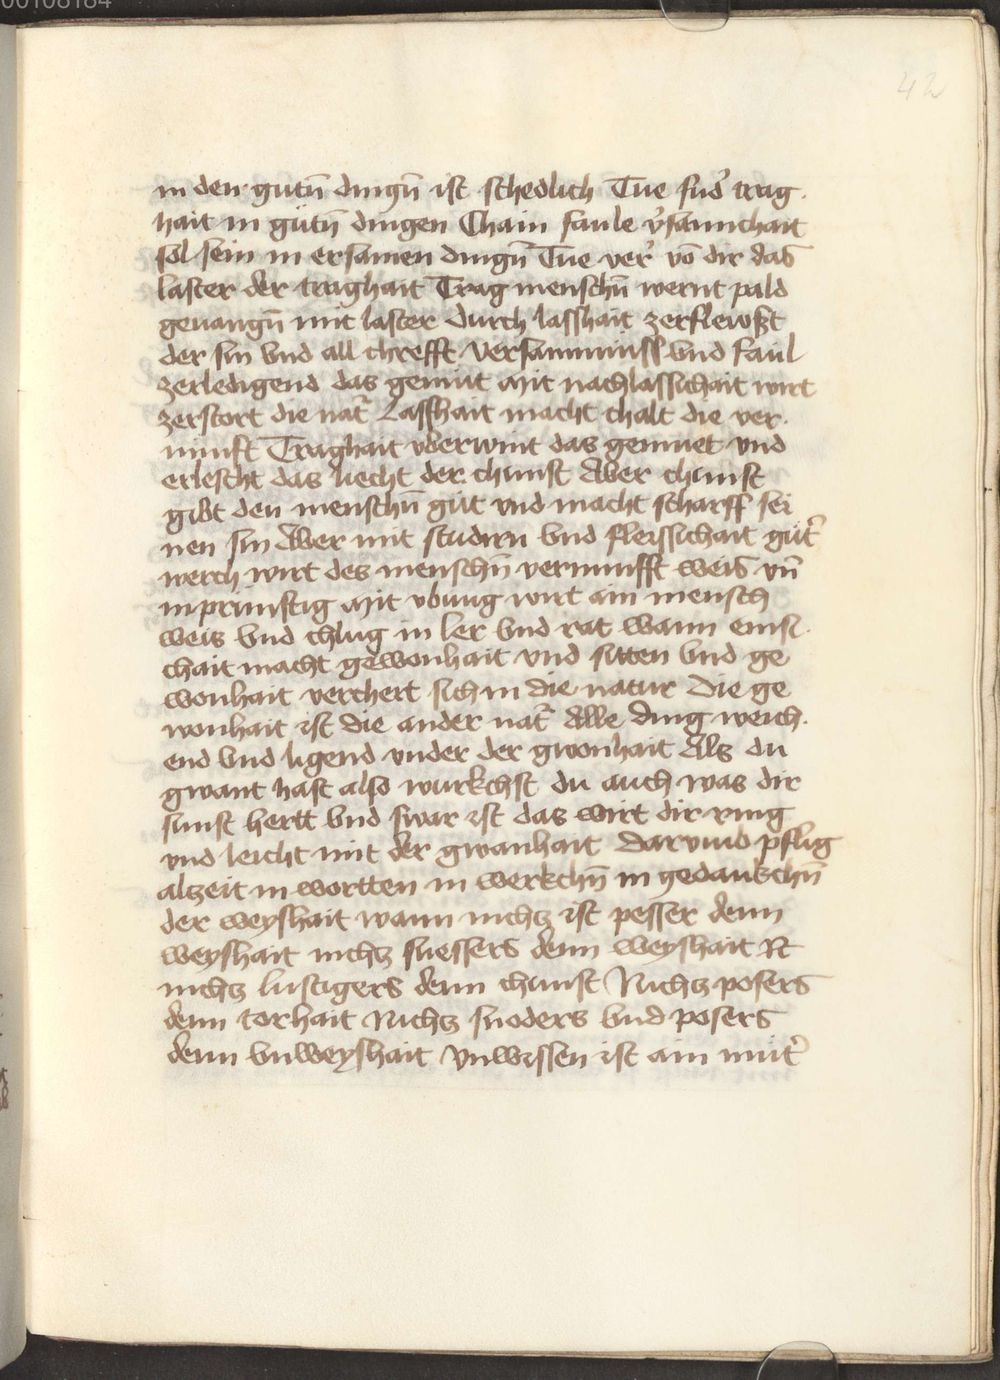 00108184
42
in den gutn̄ dingn̄ ist schedlich Tue fud' trag
hait in gutn̄ dingen Chain faule v'saumchait
sol sein in ersamen dingn̄ Tue ver' vō dir das
laster der traghait Trag menschn̄ wernt pald
geuangn̄ mit laster durch lasshait zerflewsst
der sin vnd all chrefft Versammnuss vnd faul
zerledigend das gemut Mit nachlassichait wirt
zerstort die nat' Lasshait macht chalt die ver
nunft Traghait vberwint das gemuet vnd
erlescht das liecht der chunst Aber chunst
gibt den menschn̄ gut vnd macht scharff sei
nen sin Aber mit studirn vnd fleissichait gut'
werch wirt des menschn̄ vernunfft weis vn̄
inprunstig Mit vbung wirt ain mensch
weis vnd chlug in ler vnd rat wann emsi
chait macht gewonhait vnd sitten vnd ge
wonhait verchert sich in die natur Die ge
wonhait ist die ander nat' Alle ding weich
end vnd ligend vnder der gwonhait Als du
gwant hast also wurkchst du auch was dir
sunst hertt vnd swar ist das wirt dir ring
vnd leicht mit der gwanhait Darumb pflig
alzeit in wortten in werkchn̄ in gedankchn̄
der weyshait wann nichz ist pesser denn
weyshait nichz suessers denn weyshait
nichz lustigers denn chunst Nichz posers
denn torhait Nichz snoders vnd posers
denn vnweyshait Vnwissen ist ain mut'